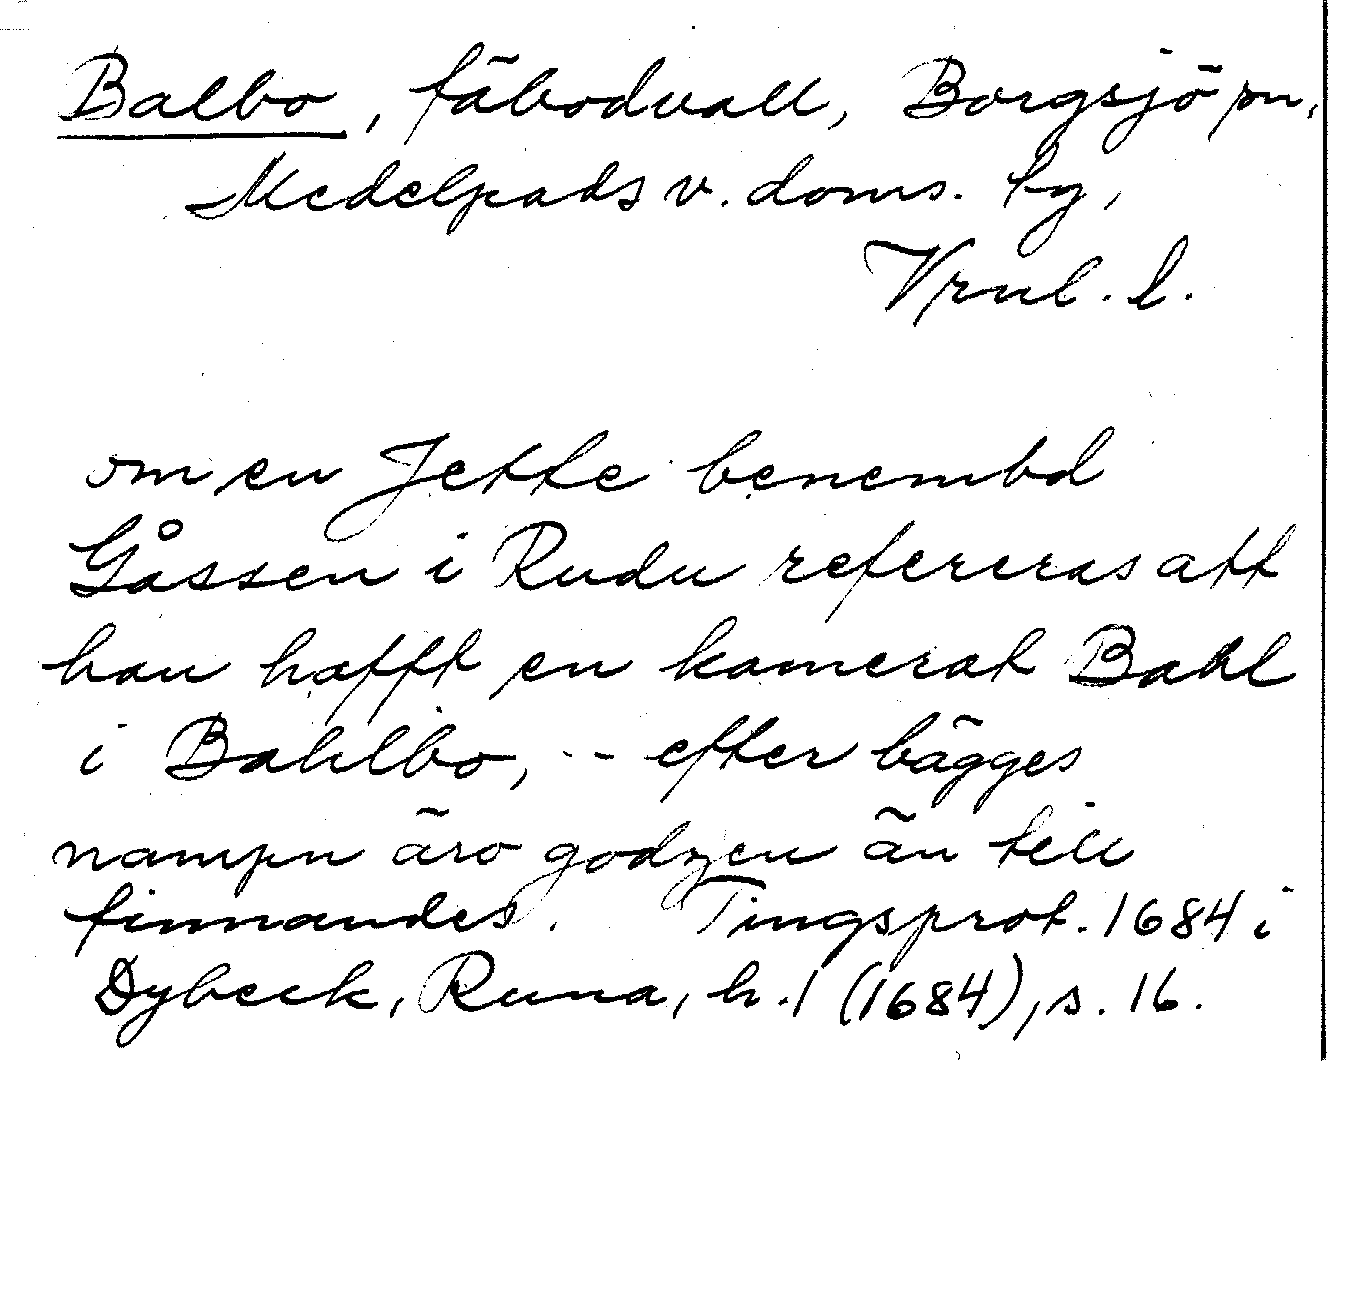 Balbo, fäbodvall, Borgsjö sn,
Medelpads v. doms. tg,
Vrnl. l.
om en Jette benembd
Gåssen i Rudu refereras att
han hafft en kamerat Bahl
i Bahlbo, -- efter bägges
nampn äro godzen än till
finnandes. Tingsprot. 1684 i
Dybeck, Runa, h. 1 (1684), s. 16.